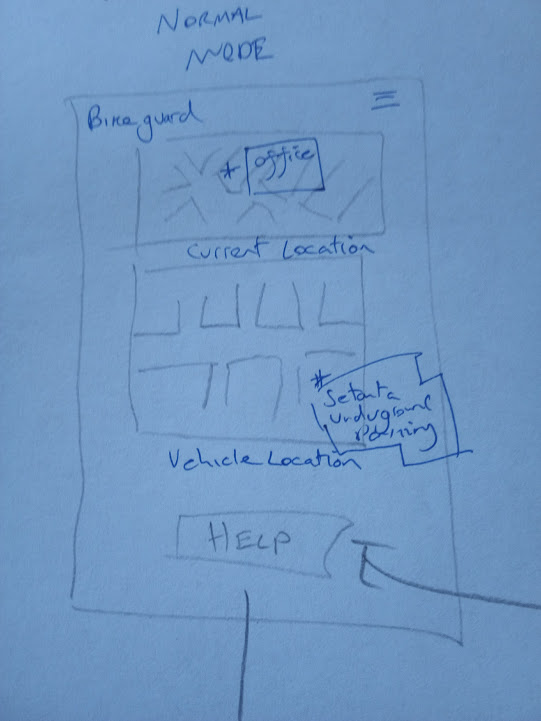 NORMAL
MODE
Bike guard
* office
Current Location
*
Setanta
underground
parking
Vehicle Location
HELP